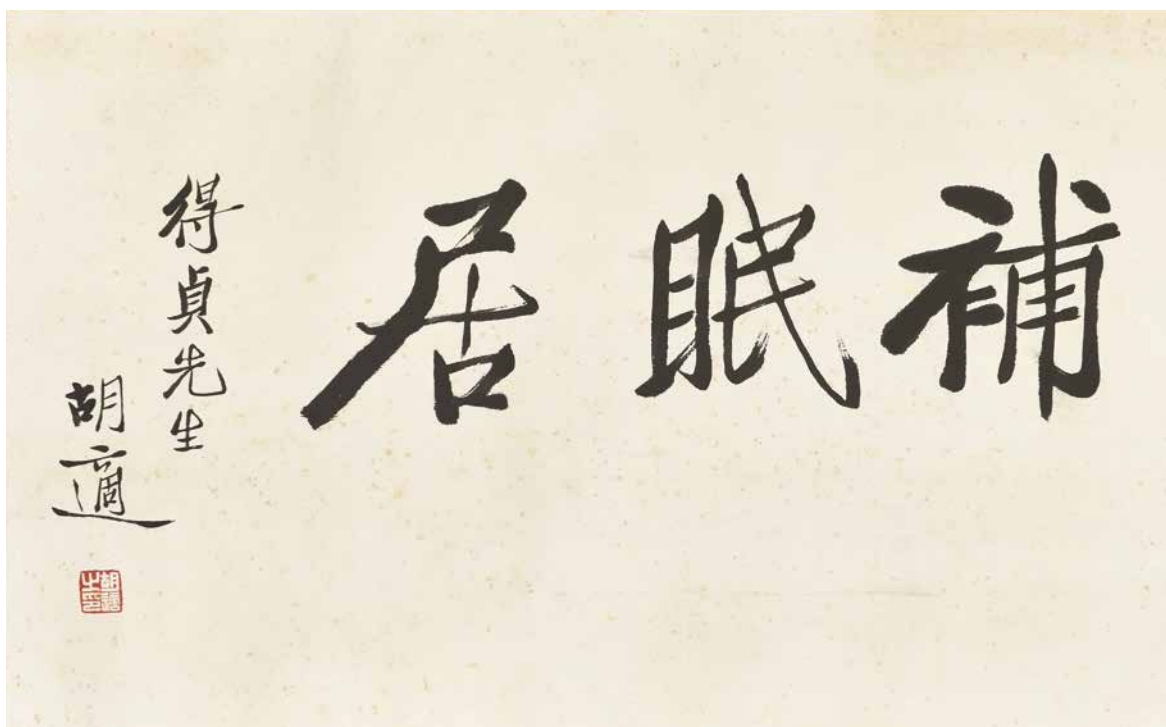 補眠居
得貞先生
胡適
胡適之印